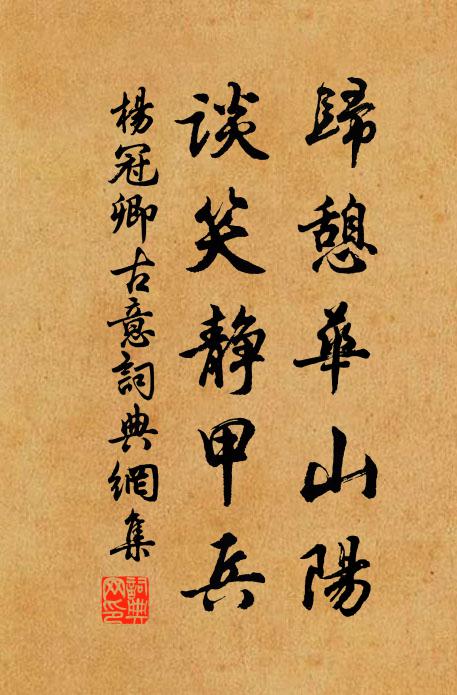 歸憩華山陽
談笑靜甲兵
楊冠卿古意詞典網集
詞典網印